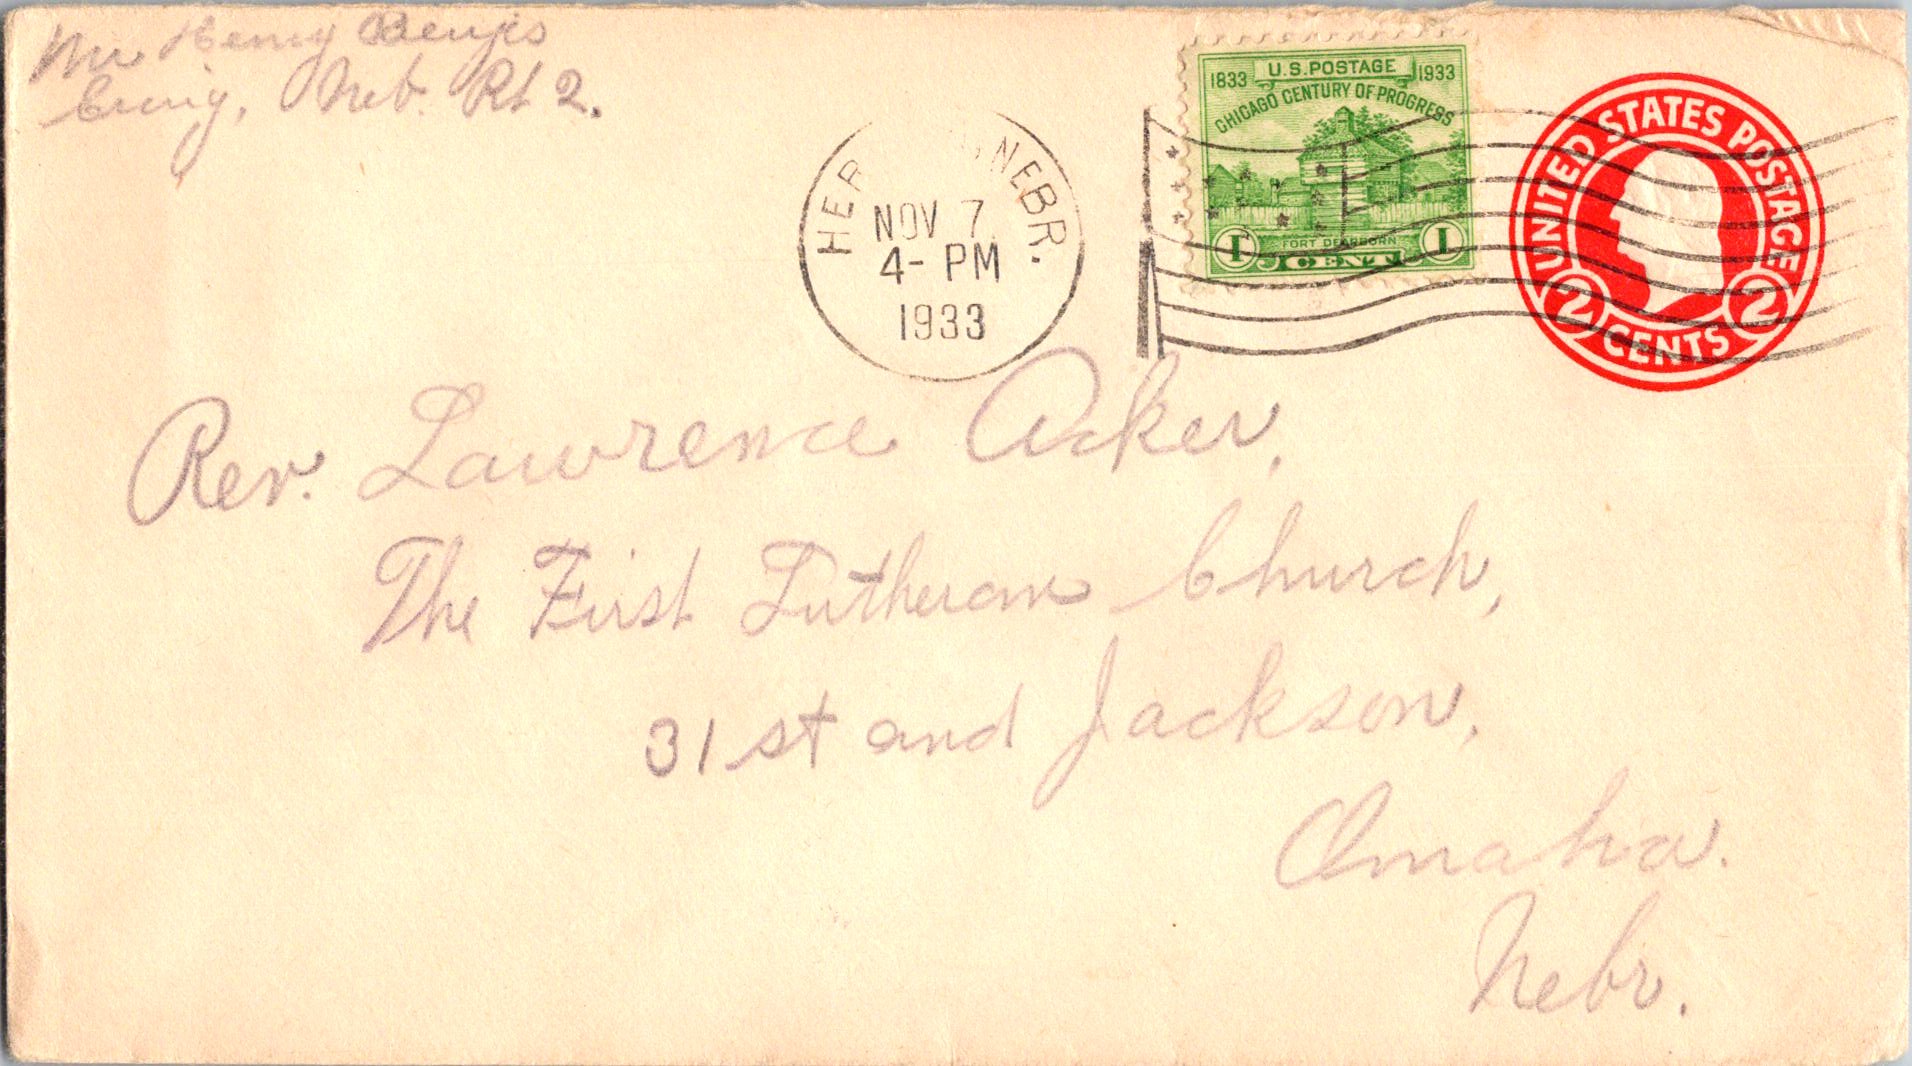 Mr Henry
Neb. Rt 2.
1833 U.S. POSTAGE 1933
CHICAGO CENTURY OF PROGRESS
FORT DEARBORN
1 CENT 1
UNITED STATES POSTAGE
2 CENTS 2
HER NEBR.
NOV 7
4- PM
1933
Rev. Lawrence Acker,
The First Lutheran Church,
31st and Jackson,
Omaha.
Nebr.